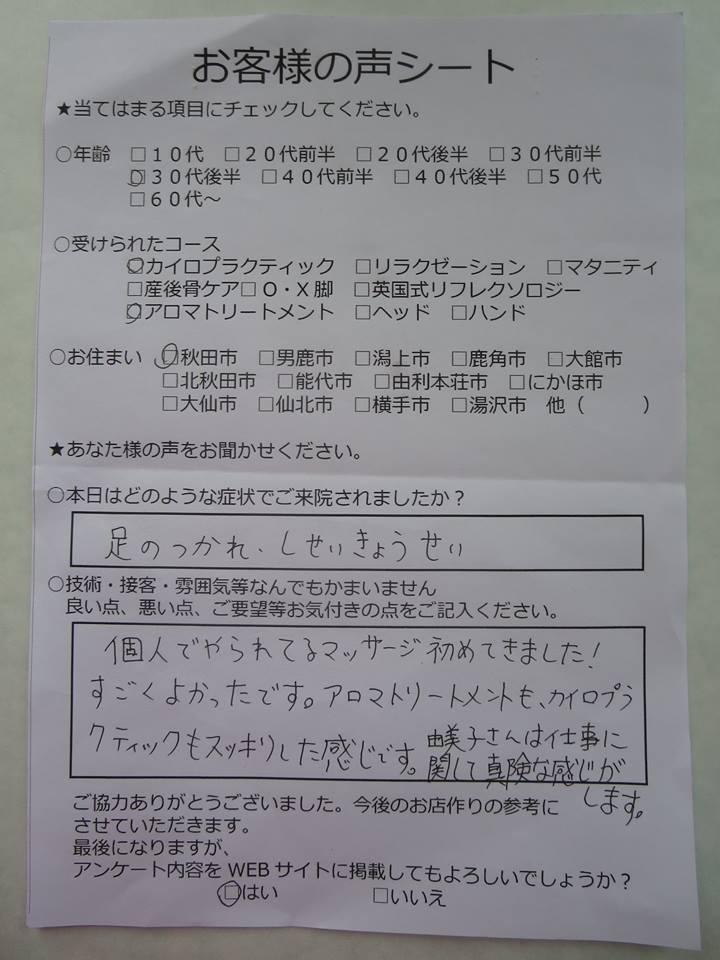 お客様の声シート
★当てはまる項目にチェックしてください。
○年齢 □１０代 □２０代前半 □２０代後半 □３０代前半
□３０代後半 □４０代前半 □４０代後半 □５０代
□６０代～
○受けられたコース
□カイロプラクティック □リラクゼーション □マタニティ
□産後骨ケア□Ｏ・Ｘ脚 □英国式リフレクソロジー
□アロマトリートメント □ヘッド □ハンド
○お住まい □秋田市 □男鹿市 □潟上市 □鹿角市 □大館市
□北秋田市 □能代市 □由利本荘市 □にかほ市
□大仙市 □仙北市 □横手市 □湯沢市 他（ ）
★あなた様の声をお聞かせください。
○本日はどのような症状でご来院されましたか？
足のつかれ、しせいきょうせい
○技術・接客・雰囲気等なんでもかまいません
良い点、悪い点、ご要望等お気付きの点をご記入ください。
個人でやられてるマッサージ初めてきました！
すごくよかったです。アロマトリートメントも、カイロプラ
クティックもスッキリした感じです。由美子さんは仕事に
関して真険な感じが
します。
ご協力ありがとうございました。今後のお店作りの参考に
させていただきます。
最後になりますが、
アンケート内容をWEBサイトに掲載してもよろしいでしょうか？
□はい □いいえ